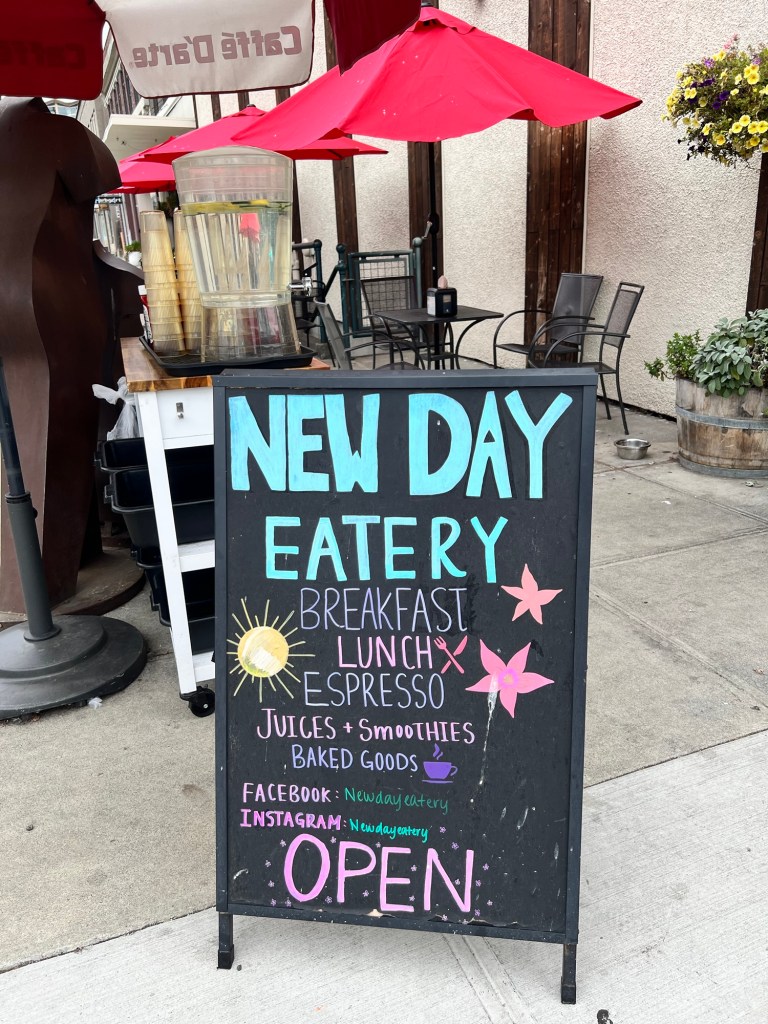 Caffé D'arte.
Caffé D'arte
NEW DAY
EATERY
BREAKFAST
LUNCH
ESPRESSO
JUICES + SMOOTHIES
BAKED GOODS
FACEBOOK: Newdayeatery
INSTAGRAM: Newdayeatery
OPEN